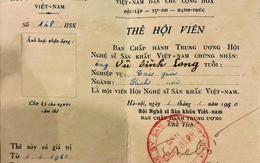 VIỆT-NAM DÂN CHỦ CỘNG HÒA
ĐỘC-LẬP - TỰ-DO - HẠNH-PHÚC
VIỆT-NAM
Số 148 HSK
THẺ HỘI VIÊN
BAN CHẤP HÀNH TRUNG ƯƠNG HỘI
NGHỆ SĨ SÂN KHẤU VIỆT-NAM CHỨNG NHẬN:
Ảnh hoặc nhận dạng
ông Vũ Đình Long TUỔI :
Nghiệp vụ : Tác giả
Ngành : Kịch nói
LÀ HỘI VIÊN HỘI NGHỆ SĨ SÂN KHẤU VIỆT-NAM.
Chữ ký của người
mang thẻ
Hà-nội, ngày 1 tháng 1 năm 1960
Hội Nghệ sĩ Sân Khấu Việt-Nam
BAN CHẤP HÀNH TRUNG ƯƠNG
Chủ Tịch
Thẻ này có giá trị